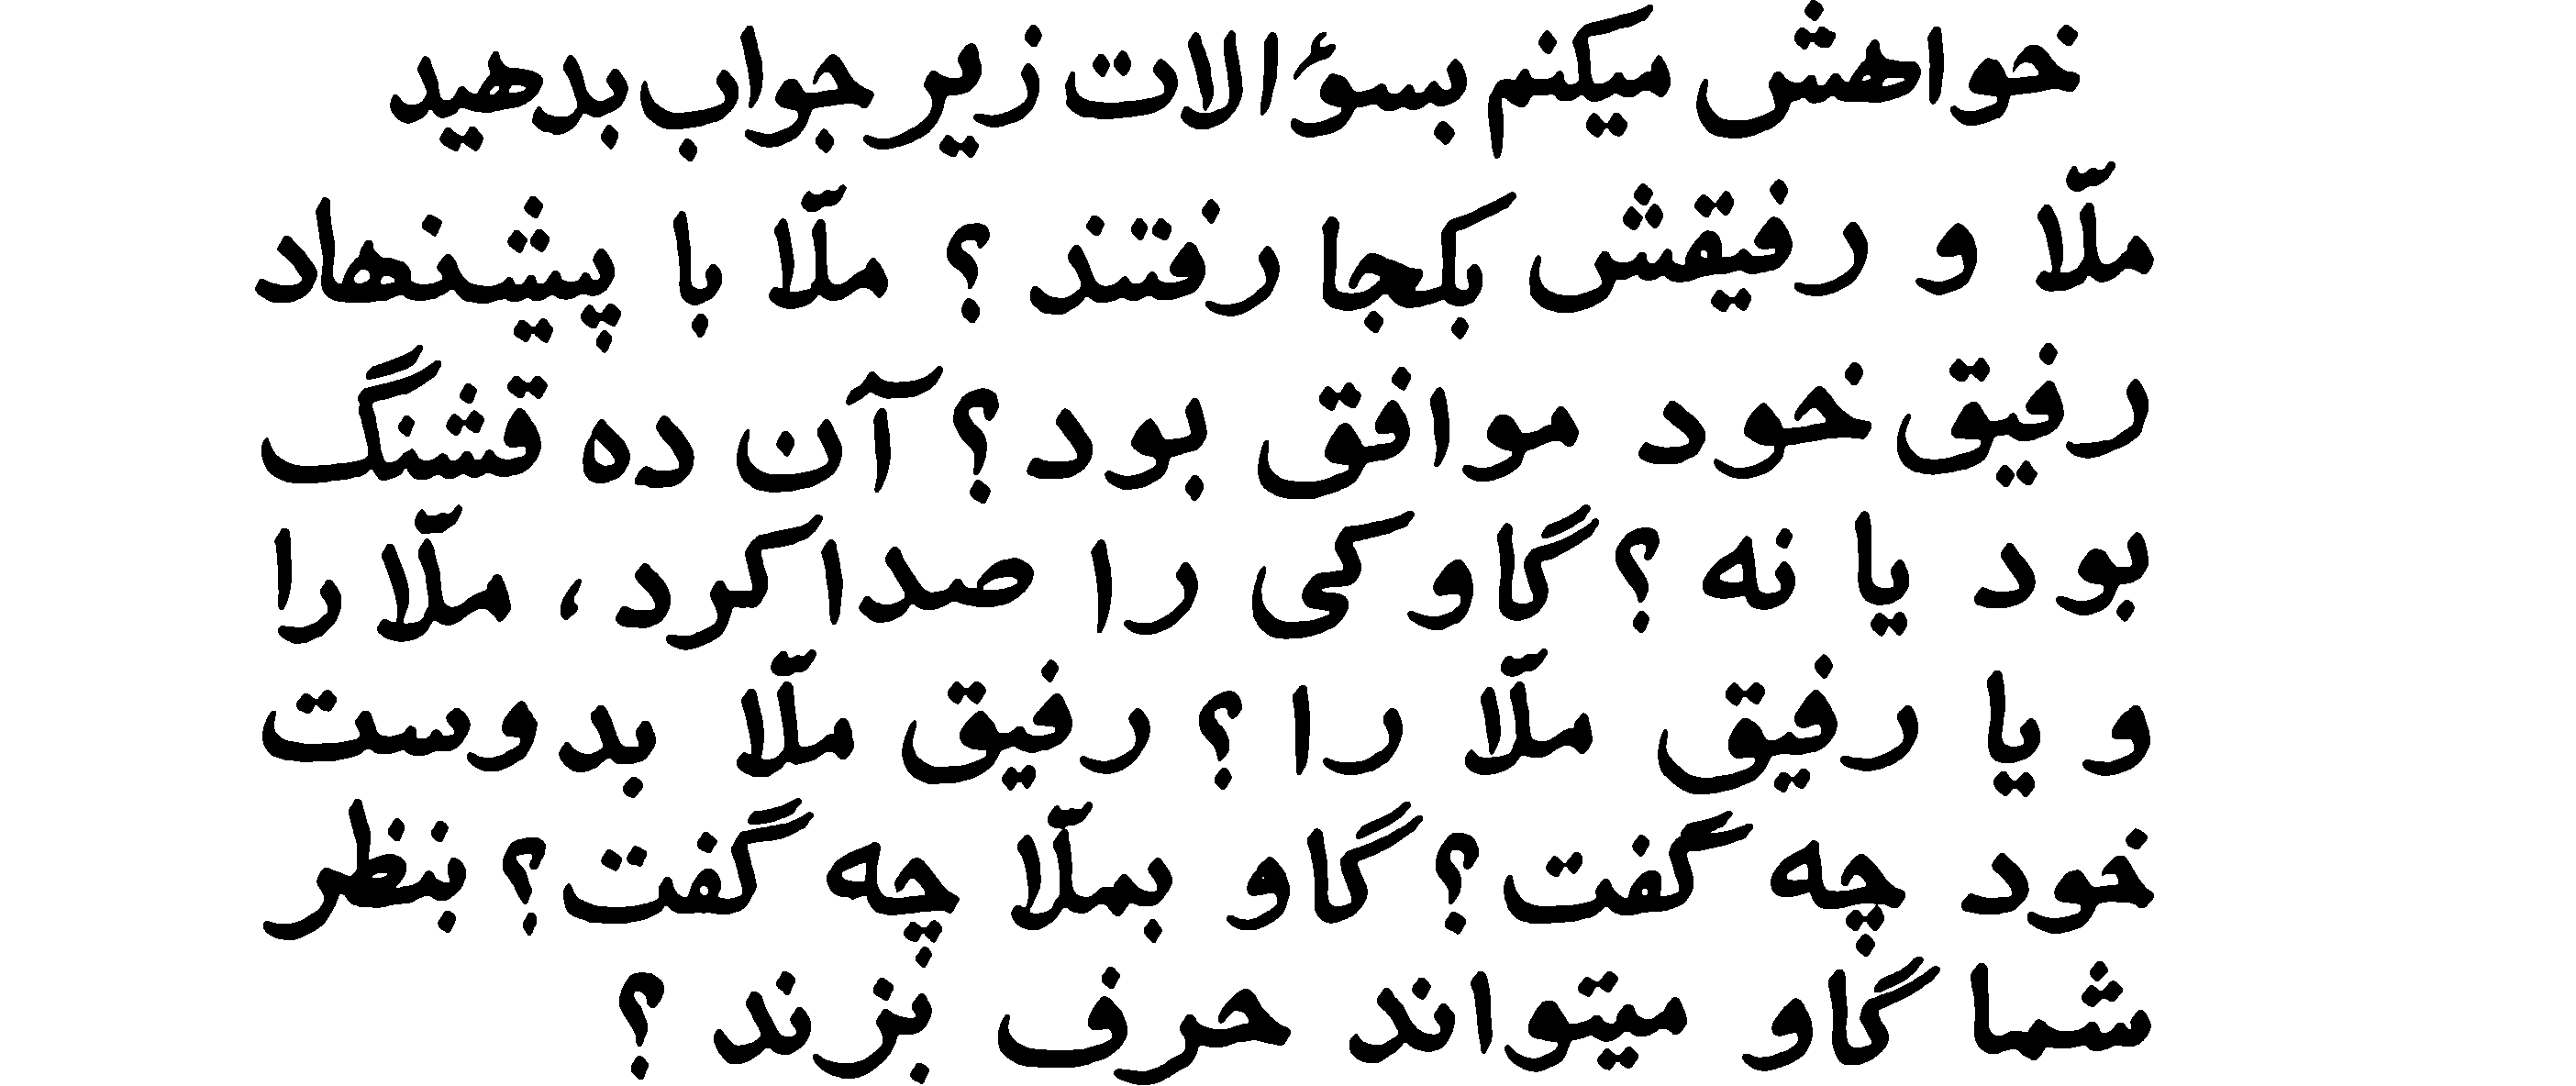 خواهش میکنم بسؤالات زیر جواب بدهید
ملّا و رفیقش بکجا رفتند ؟ ملّا با پیشنهاد
رفیق خود موافق بود؟ آن ده قشنگ
بود یا نه ؟ گاو کی را صدا کرد، ملّا را
و یا رفیق ملّا را ؟ رفیق ملّا بدوست
خود چه گفت؟ گاو بملّا چه گفت؟ بنظر
شما گاو میتواند حرف بزند ؟